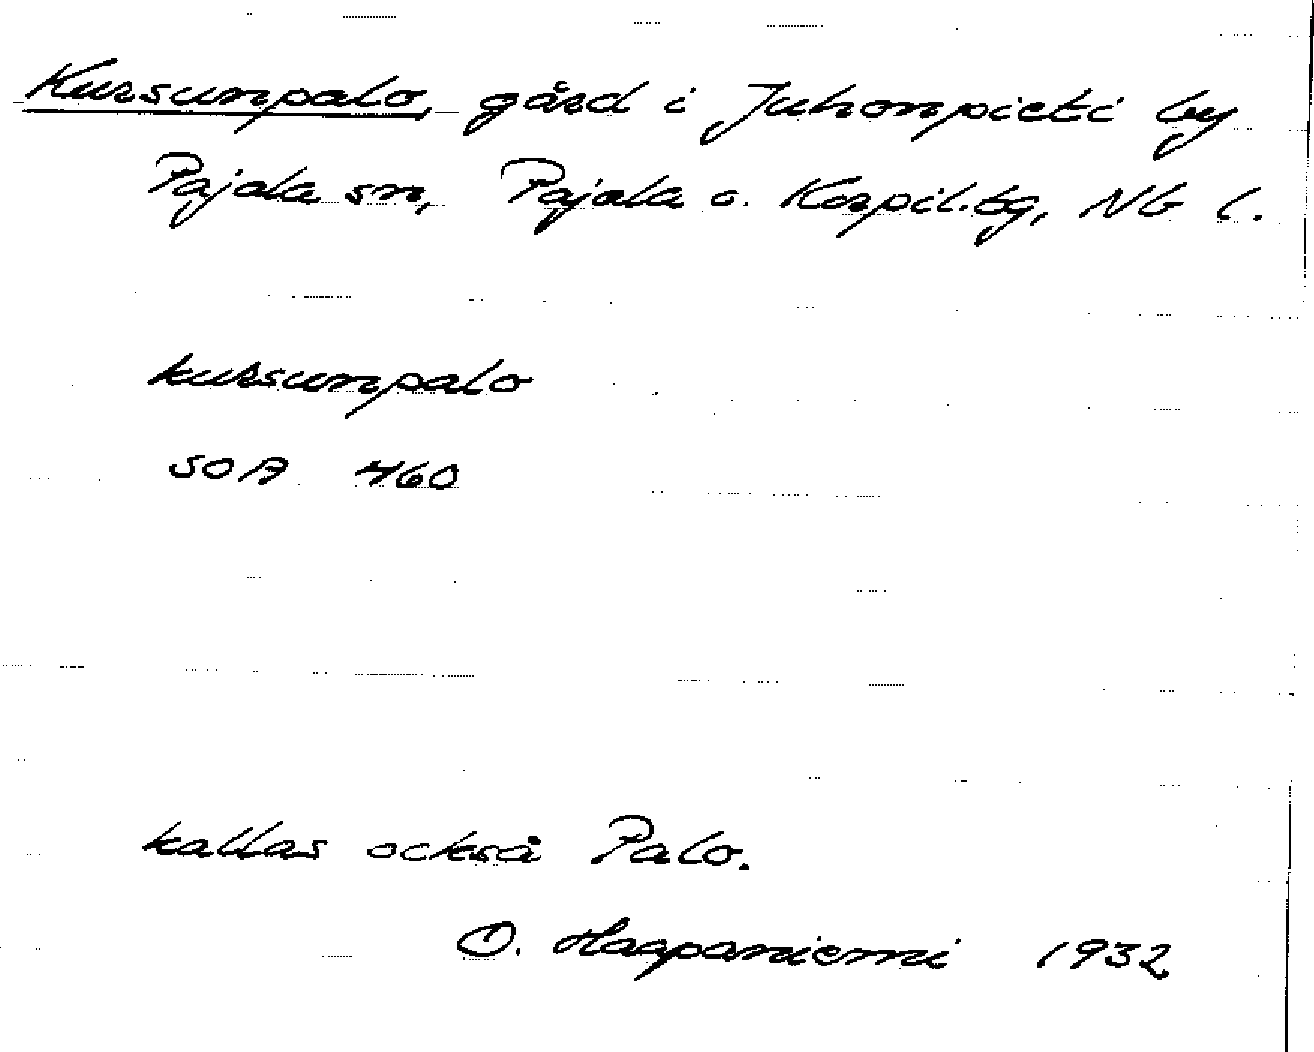 Kursunpalo, gård i Juhonpieti by
Pajala sn, Pajala o. Korpil. tg, NB l.
kursunpalo
SOA 460
kallas också Palo.
O. Haapaniemi 1932